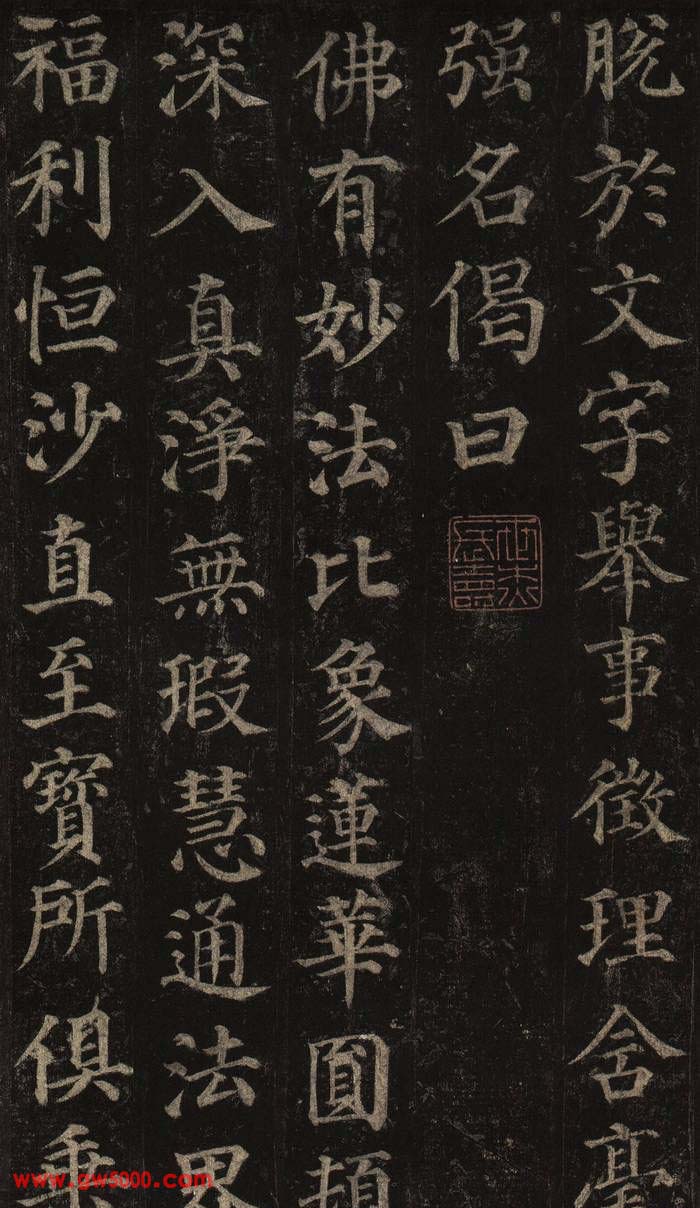 脱於文字舉事徵理含毫
强名偈曰
佛有妙法比象蓮華圓頓
深入真淨無瑕慧通法界
福利恒沙直至寶所俱乘
www.gw5000.com